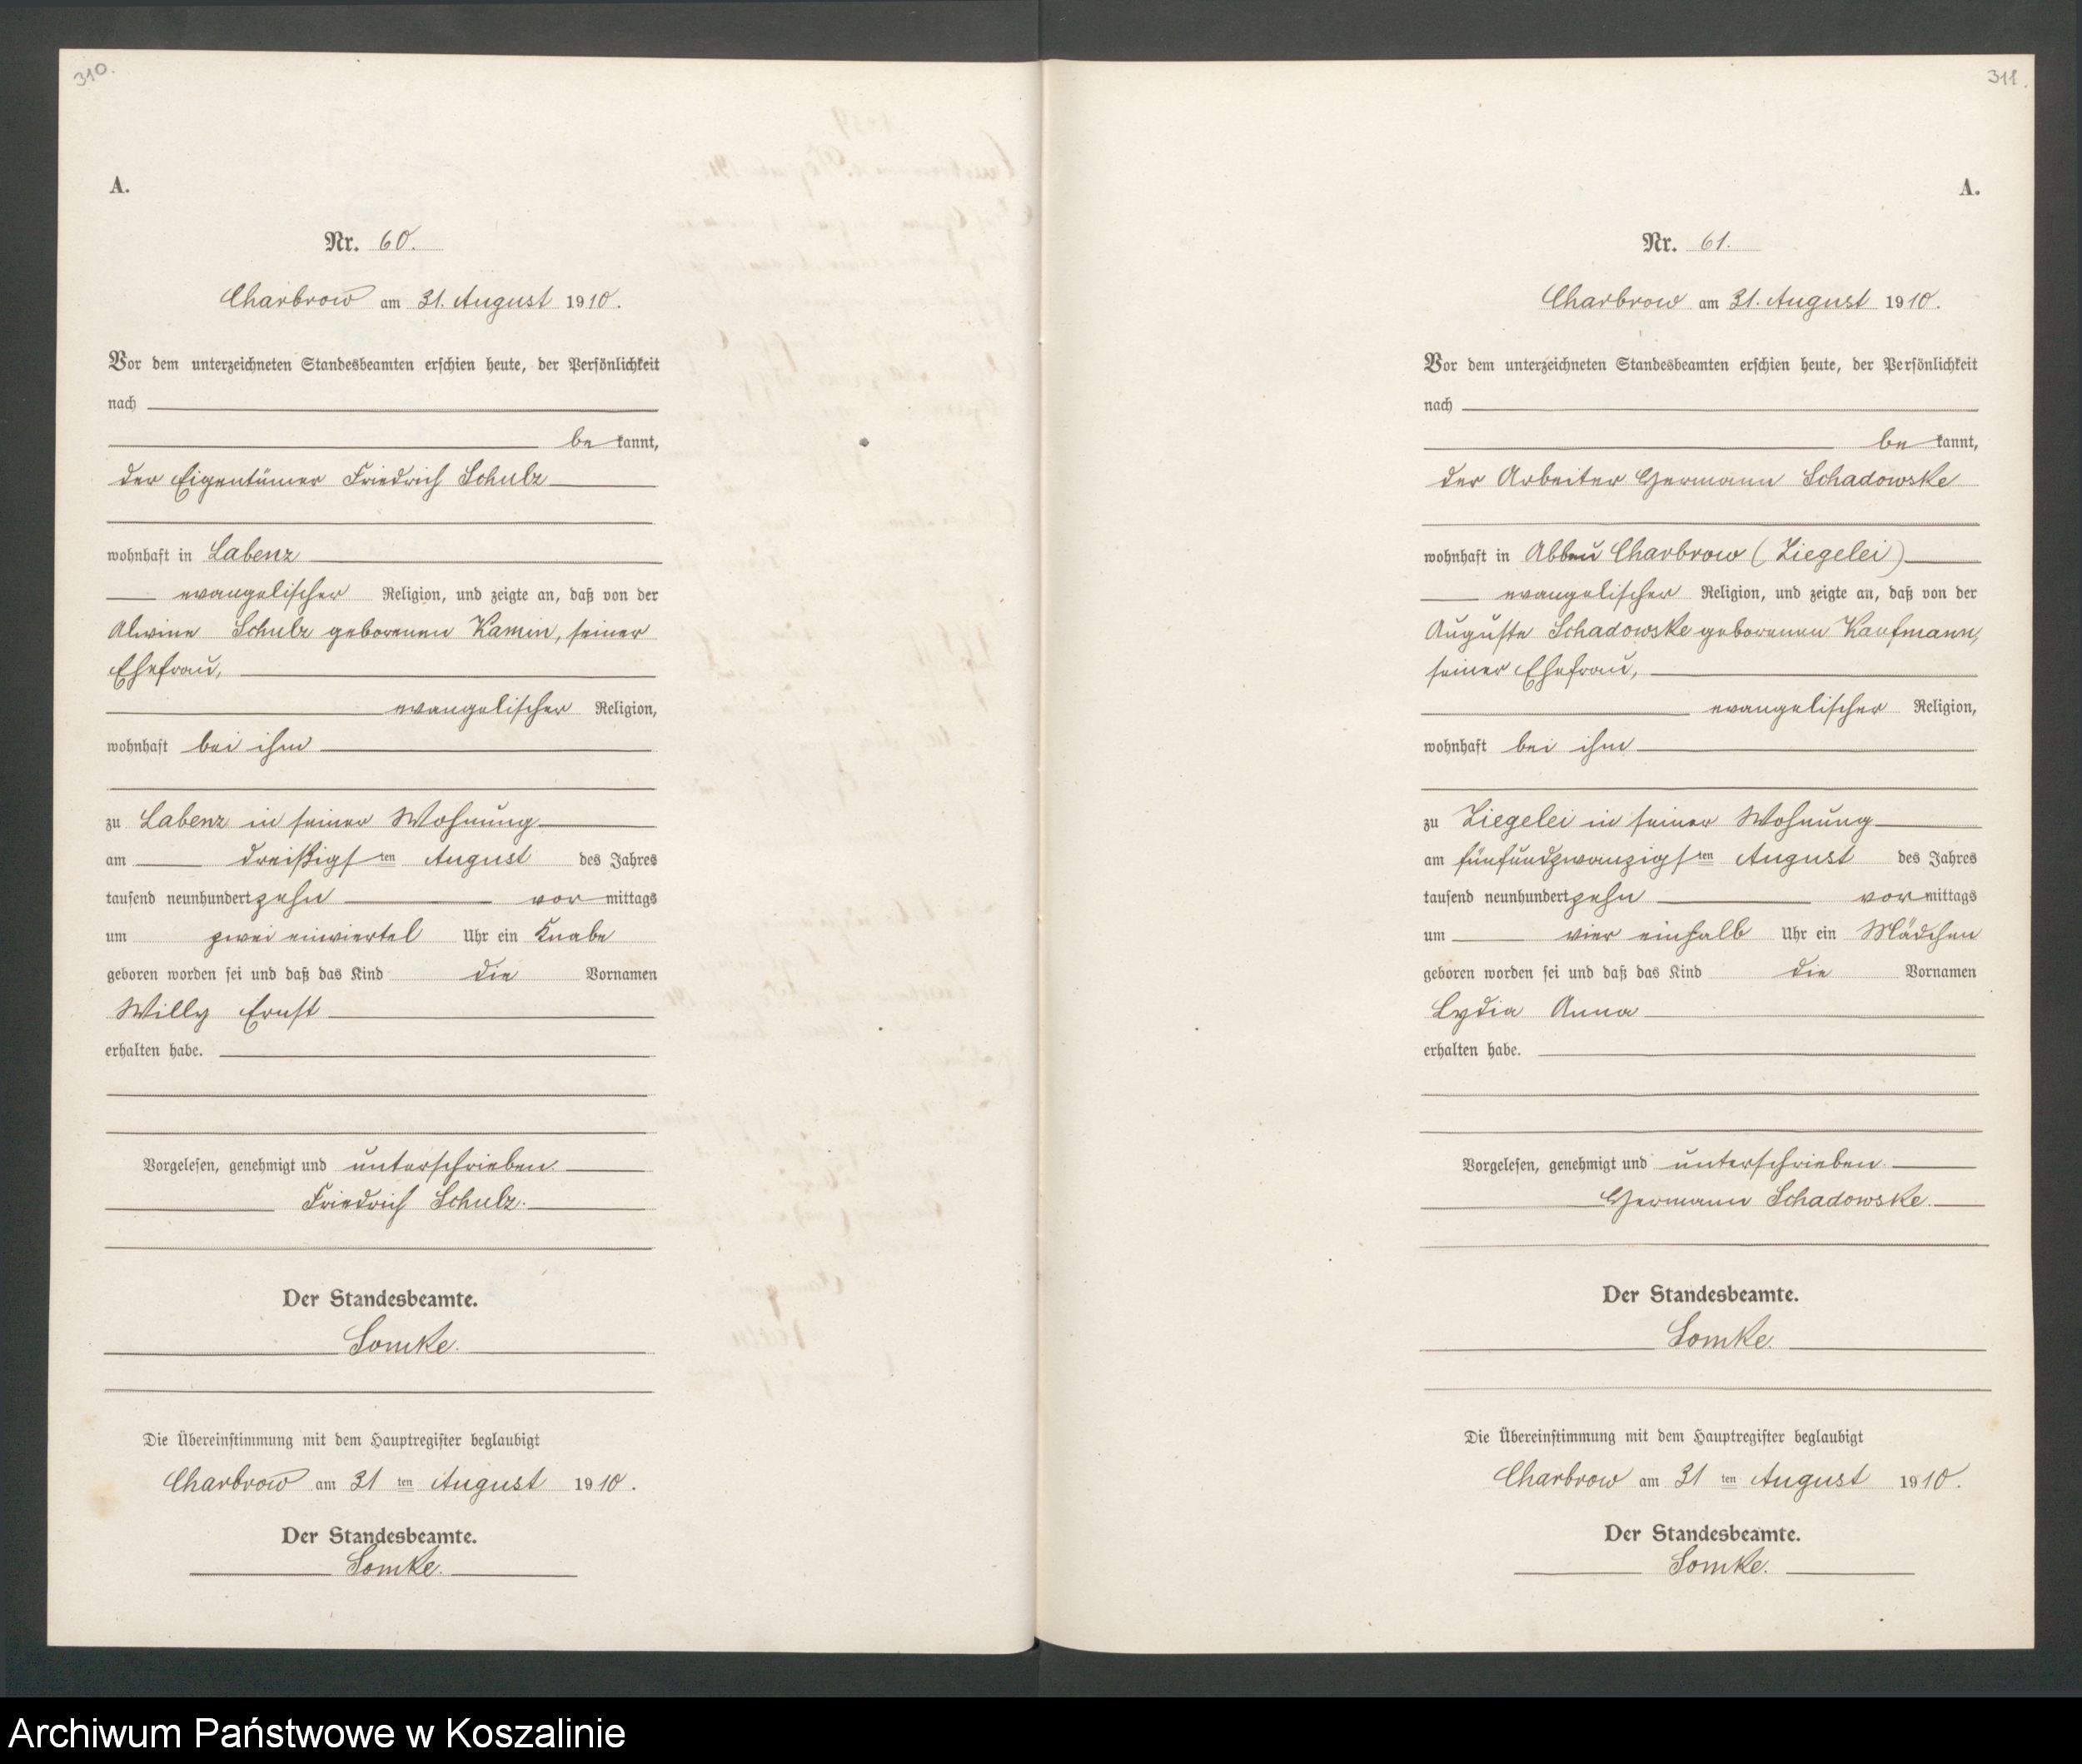 310.
A.
Nr. 60.
Charbrow am 31. August 1910.
Vor dem unterzeichneten Standesbeamten erschien heute, der Persönlichkeit
nach
bekannt,
der Eigentümer Friedrich Schulz
wohnhaft in Labenz
evangelischer Religion, und zeigte an, daß von der
Alwine Schulz geborenen Kamin, seiner
Ehefrau,
evangelischer Religion,
wohnhaft bei ihm
zu Labenz in seiner Wohnung
am dreißigsten August des Jahres
tausend neunhundertzehn vormittags
um zwei einviertel Uhr ein Knabe
geboren worden sei und daß das Kind die Vornamen
Willy Ernst
erhalten habe.
Vorgelesen, genehmigt und unterschrieben.
Friedrich Schulz.
Der Standesbeamte.
Somke.
Die Übereinstimmung mit dem Hauptregister beglaubigt
Charbrow am 31ten August 1910.
Der Standesbeamte.
Somke.
311.
A.
Nr. 61.
Charbrow am 31. August 1910.
Vor dem unterzeichneten Standesbeamten erschien heute, der Persönlichkeit
nach
bekannt,
der Arbeiter Hermann Schadowske
wohnhaft in Abbau Charbrow (Ziegelei)
evangelischer Religion, und zeigte an, daß von der
Auguste Schadowske geborenen Kaufmann,
seiner Ehefrau,
evangelischer Religion,
wohnhaft bei ihm
zu Ziegelei in seiner Wohnung
am fünfundzwanzigsten August des Jahres
tausend neunhundertzehn vormittags
um vier einhalb Uhr ein Mädchen
geboren worden sei und daß das Kind die Vornamen
Lydia Anna
erhalten habe.
Vorgelesen, genehmigt und unterschrieben.
Hermann Schadowske.
Der Standesbeamte.
Somke.
Die Übereinstimmung mit dem Hauptregister beglaubigt
Charbrow am 31ten August 1910.
Der Standesbeamte.
Somke.
Archiwum Państwowe w Koszalinie